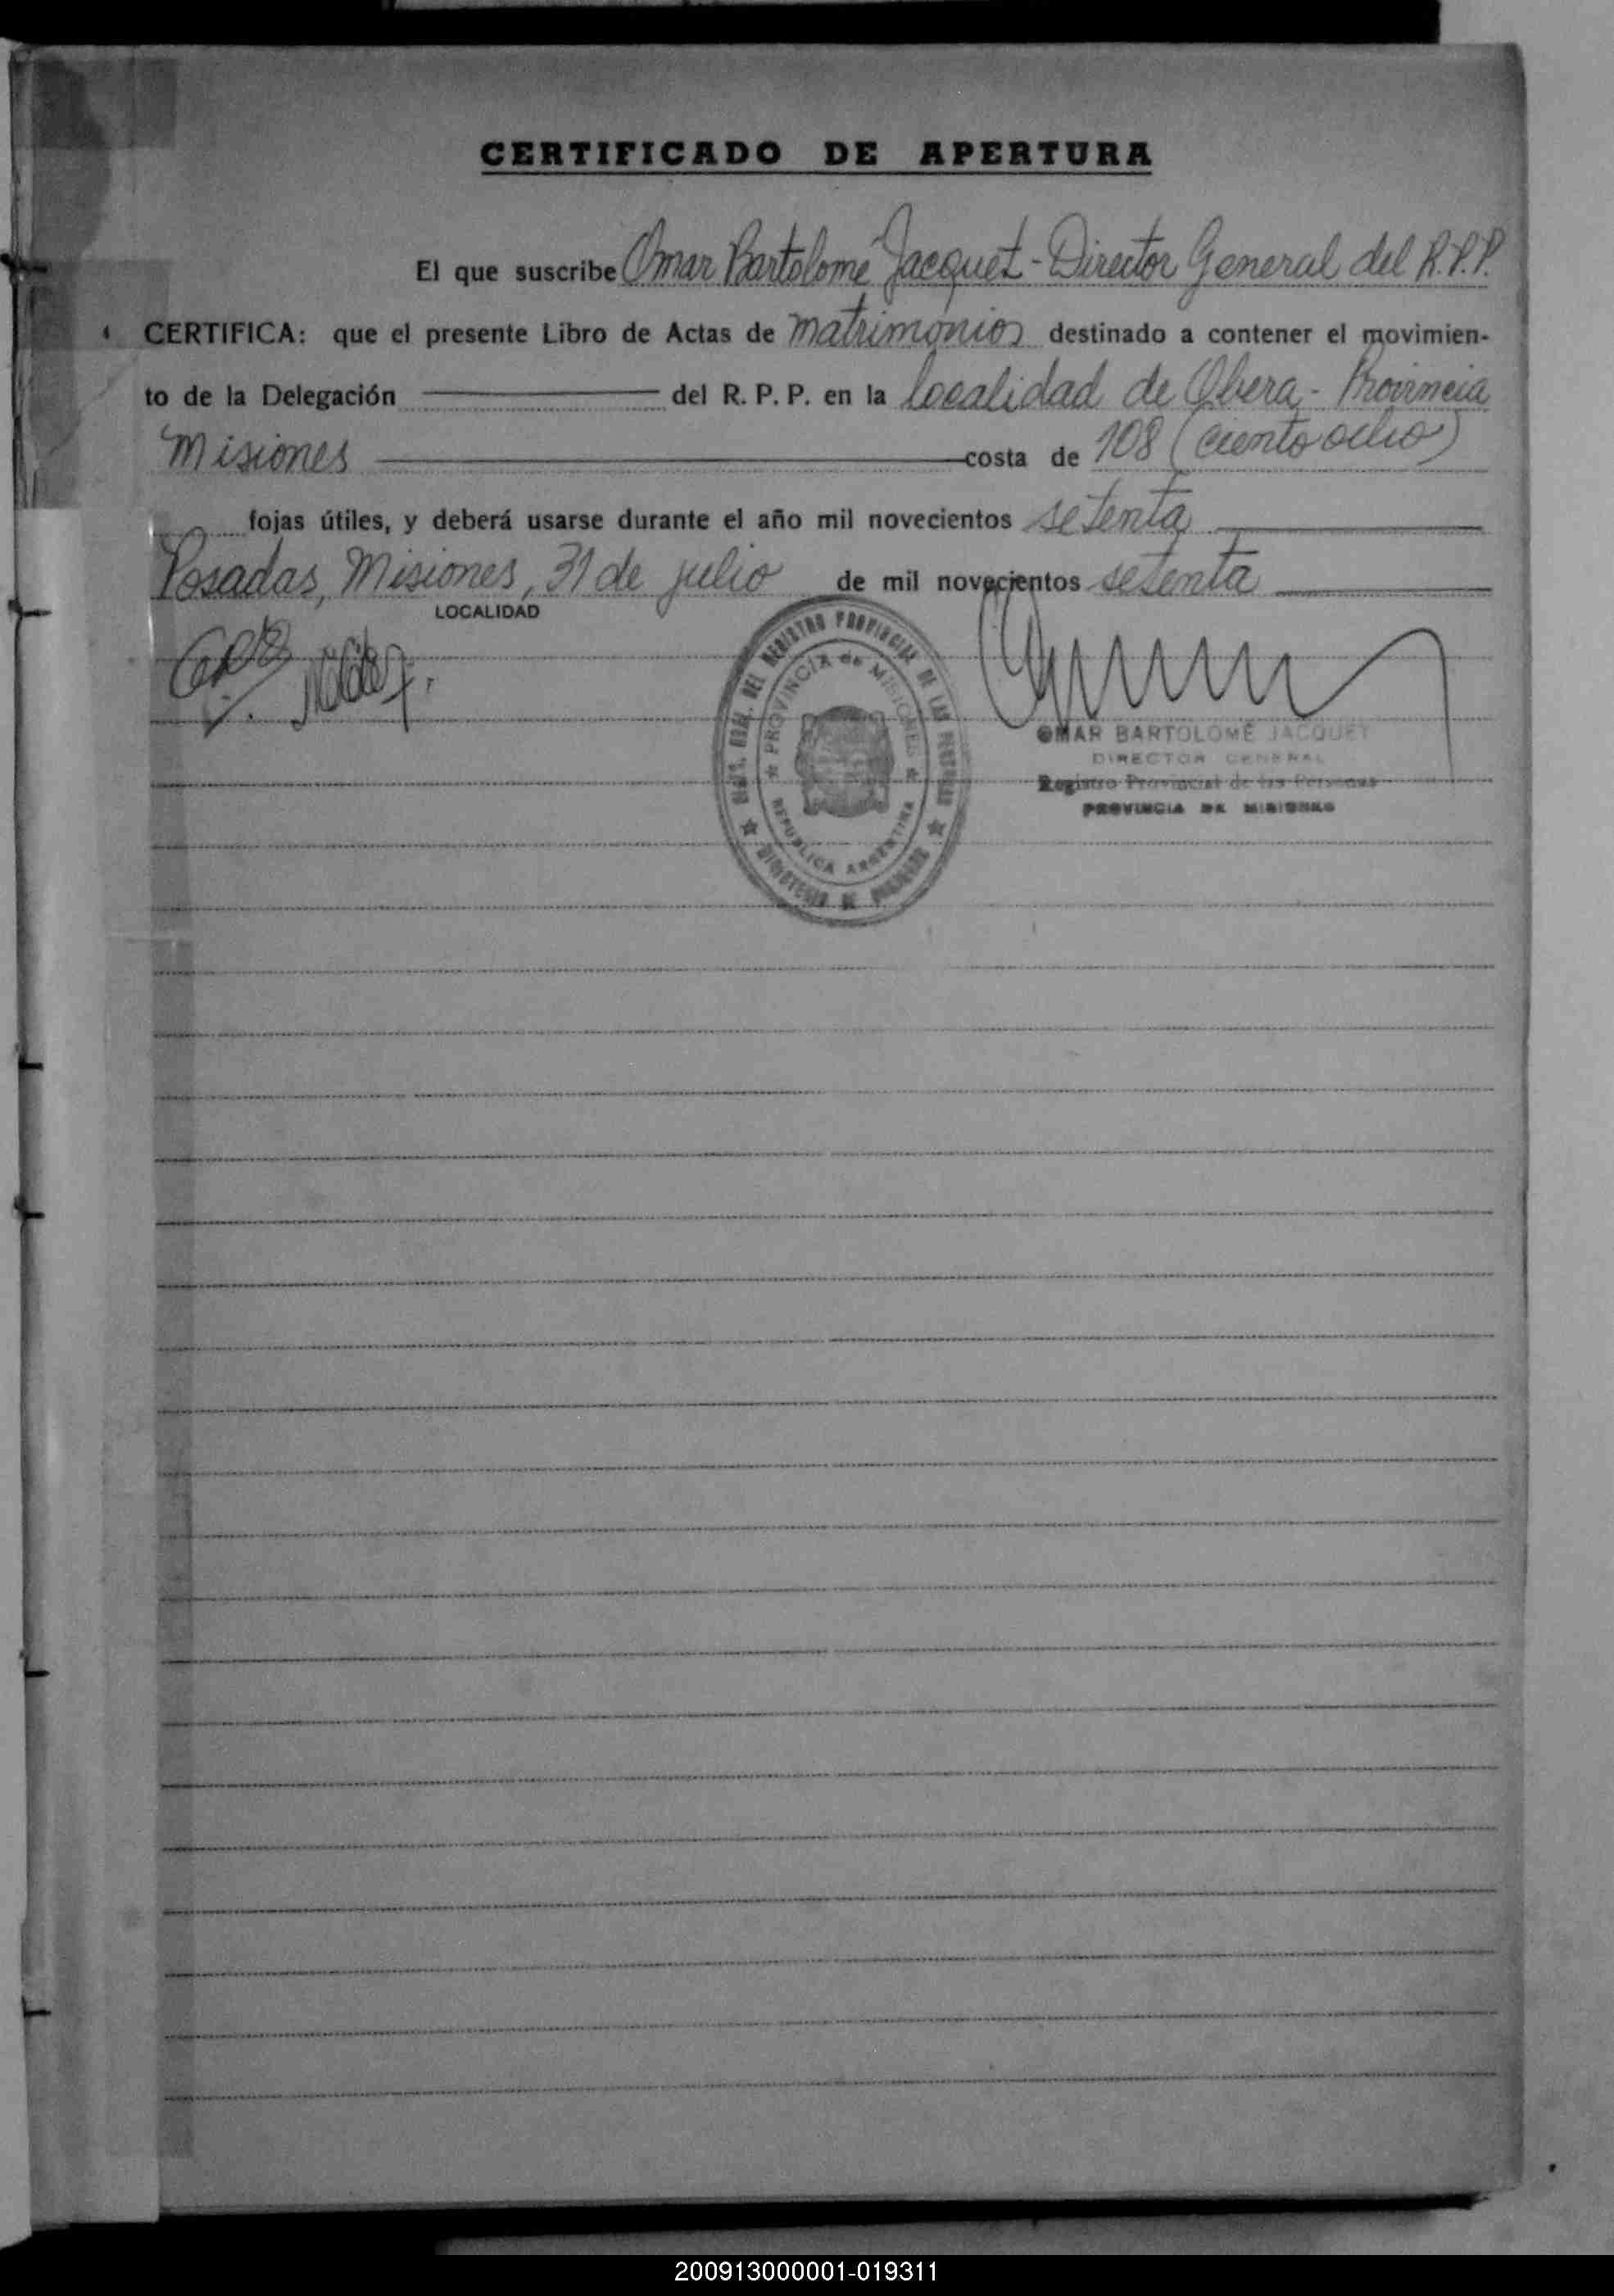 CERTIFICADO DE APERTURA
El que suscribe Omar Bartolomé Jacquet - Director General del R.P.P.
CERTIFICA: que el presente Libro de Actas de Matrimonios destinado a contener el movimien-
to de la Delegación del R. P. P. en la localidad de Obera - Provincia
Misiones costa de 108 (ciento ocho)
fojas útiles, y deberá usarse durante el año mil novecientos setenta
Posadas, Misiones, 31 de julio de mil novecientos setenta
LOCALIDAD
GRAL. DEL REGISTRO PROVINCIAL DE LAS PERSONAS
PROVINCIA de MISIONES
REPUBLICA ARGENTINA
MINISTERIO DE
OMAR BARTOLOMÉ JACQUET
DIRECTOR GENERAL
Registro Provincial de las Personas
PROVINCIA DE MISIONES
200913000001-019311